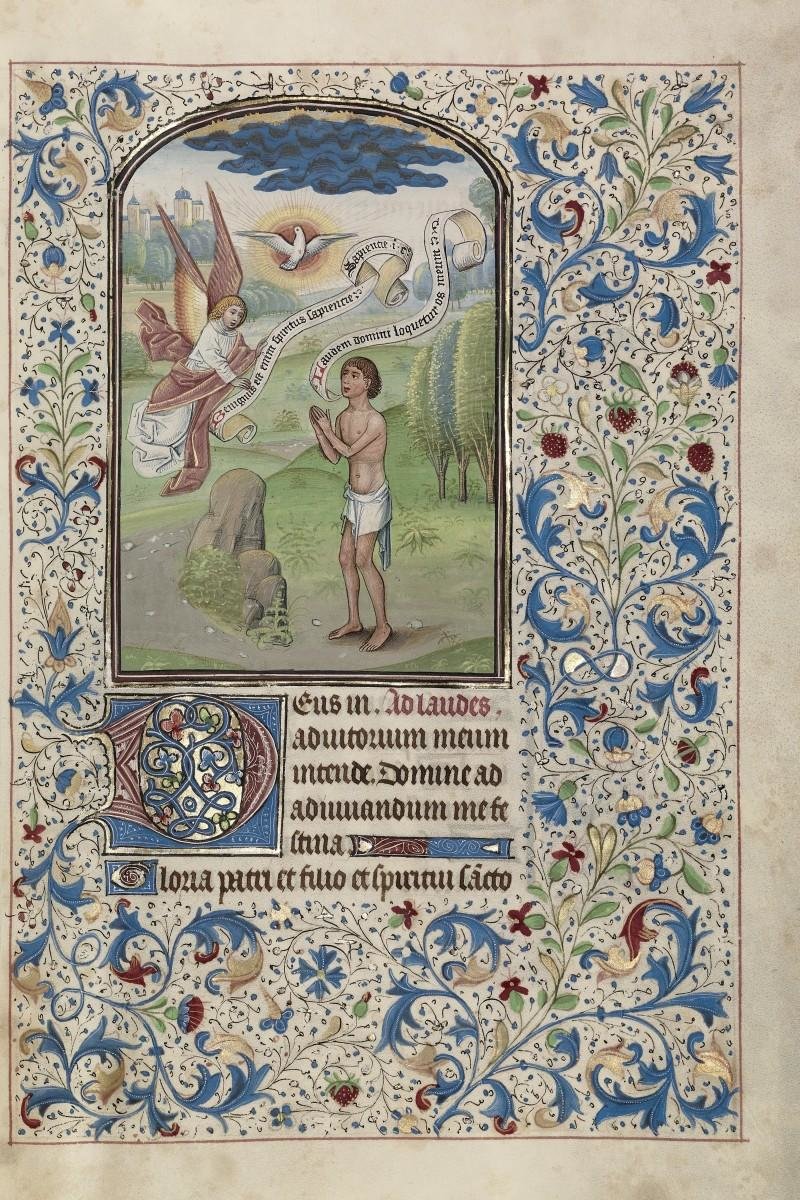 Benignus est enim spiritus sapiencie
Sapiencie .i. c.
Laudem domini loquetur os meum
Deus in. Ad laudes.
adiutorium meum
intende. Domine ad
adiuuandum me fe
stina
Gloria patri et filio et spiritui sc̄to